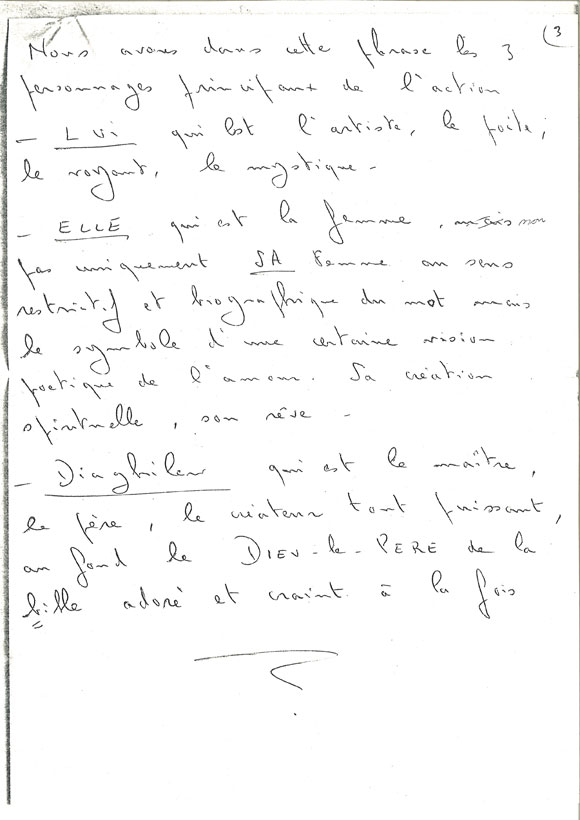 (3
Nous avons dans cette phrase les 3
personnages principaux de l'action
- LUI qui est l'artiste, le poète,
le voyant, le mystique -
- ELLE qui est la femme, mais non
pas uniquement SA femme au sens
restrictif et biographique du mot mais
le symbole d'une certaine vision
poetique de l'amour. Sa création
spirituelle, son rêve -
- Diaghilew qui est le maître,
le père, le créateur tout puissant,
au fond le DIEU-le-PERE de la
bible adoré et craint à la fois